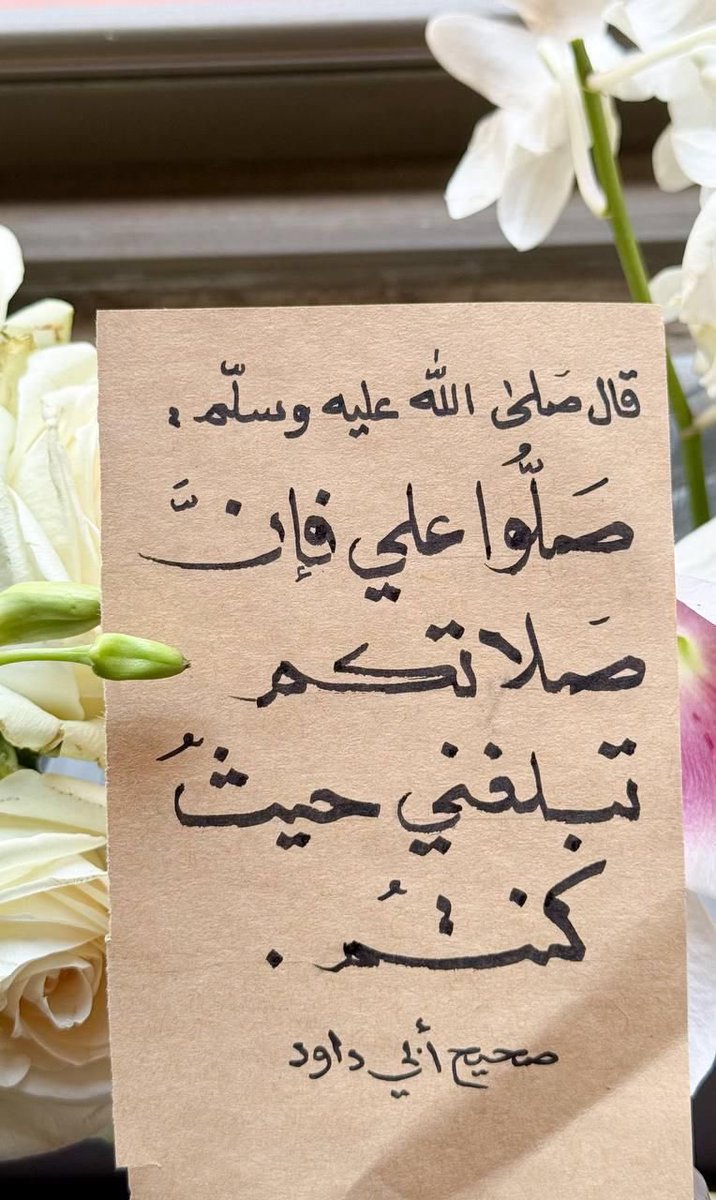 قال صَلىٰ اللّٰه عليه وسلّم :
صَلُّوا علي فإنَّ
صَلاتكم
تبلغني حيثُ
كنتمُ .
صحيح أبي داود